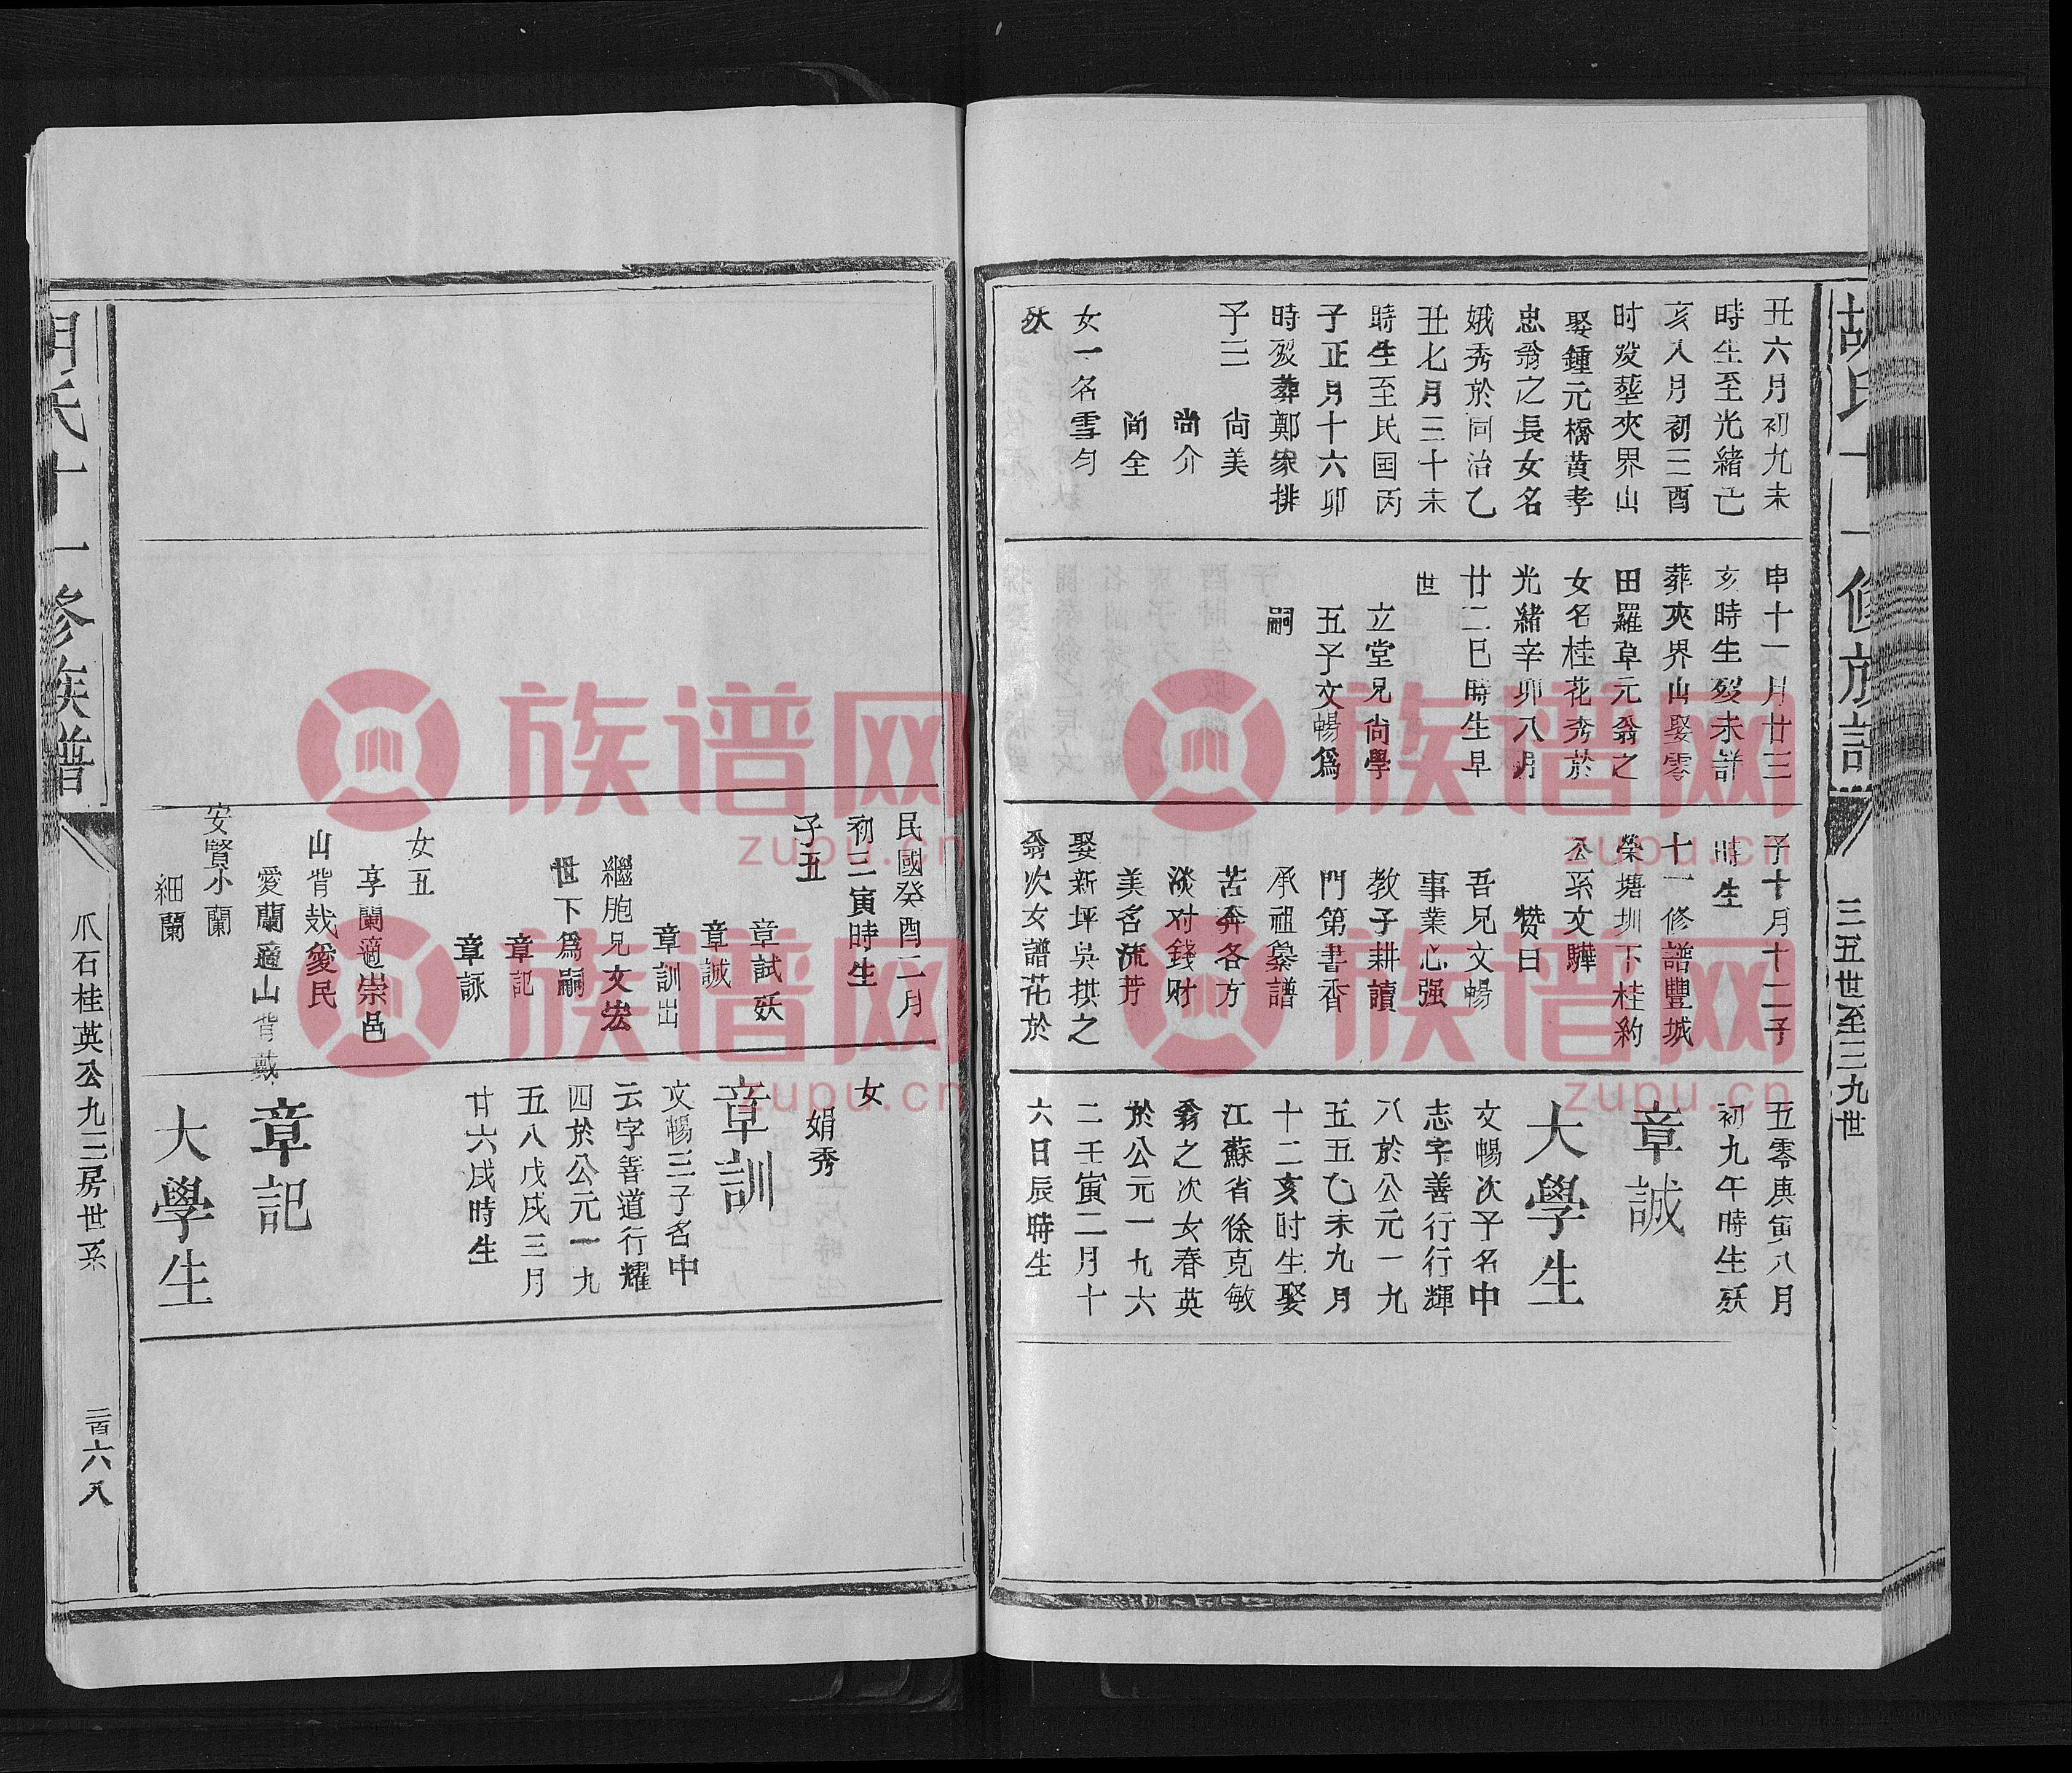 胡氏十一修族譜
三五世至三九世
丑六月初九未
時生至光緒己
亥八月初三酉
时歿塟夾界山
娶鍾元橋黄孝
忠翁之長女名
娥秀於同治乙
丑七月三十未
時生至民国丙
子正月十六卯
時歿葬鄭家排
子三 尚美
尚介
尚全
女一名雪勻
殀
申十一月廿三
亥時生歿未詳
葬夾界山娶零
田羅阜元翁之
女名桂花秀於
光緒辛卯八月
廿二巳時生早
世
立堂兄尚學
五子文暢爲
嗣
子十月十二子
時生
十一修譜豐城
榮塘圳下桂約
公系文驊
赞曰
吾兄文暢
事業心强
教子耕讀
門第書香
承祖纂譜
苦奔各方
淡对錢财
美名流芳
娶新坪吳拱之
翁次女譜花於
五零庚寅八月
初九午時生殀
章誠
大學生
文暢次子名中
志字善行行輝
八於公元一九
五五乙未九月
十二亥时生娶
江蘇省徐克敏
翁之次女春英
於公元一九六
二壬寅二月十
六日辰時生
民國癸酉二月
初三寅時生
子五
章試殀
章誠
章訓出
繼胞兄文宏
世下爲嗣
章記
章詠
女五
享蘭適崇邑
山背栽愛民
愛蘭適山背戴
安賢小蘭
細蘭
女
娟秀
章訓
文暢三子名中
云字善道行耀
四於公元一九
五八戊戌三月
廿六戌時生
章記
大學生
胡氏十一修族譜
爪石桂英公九三房世系
二百六八
族谱网
zupu.cn
族谱网
zupu.cn
族谱网
zupu.cn
族谱网
zupu.cn